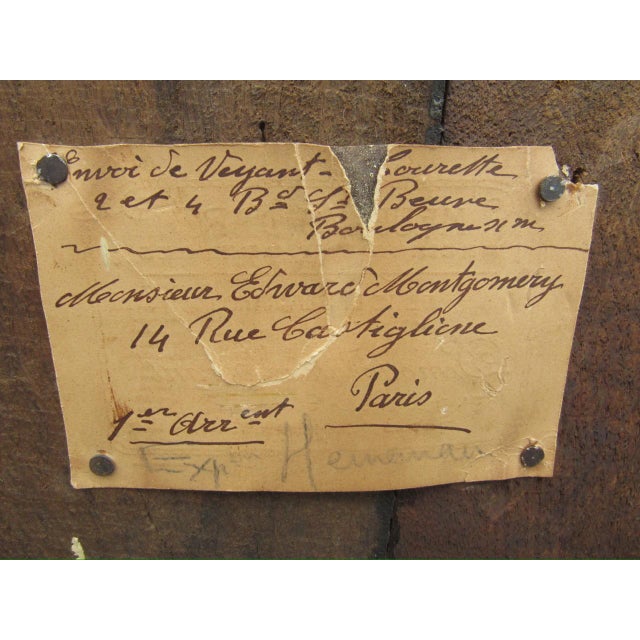 Envoi de Veyant- Courette
2 et 4 Bd Ste Beuve
Boulogne s/m
Monsieur Edward Montgomery
14 Rue Castiglione
Paris
1er Arrent
Expon